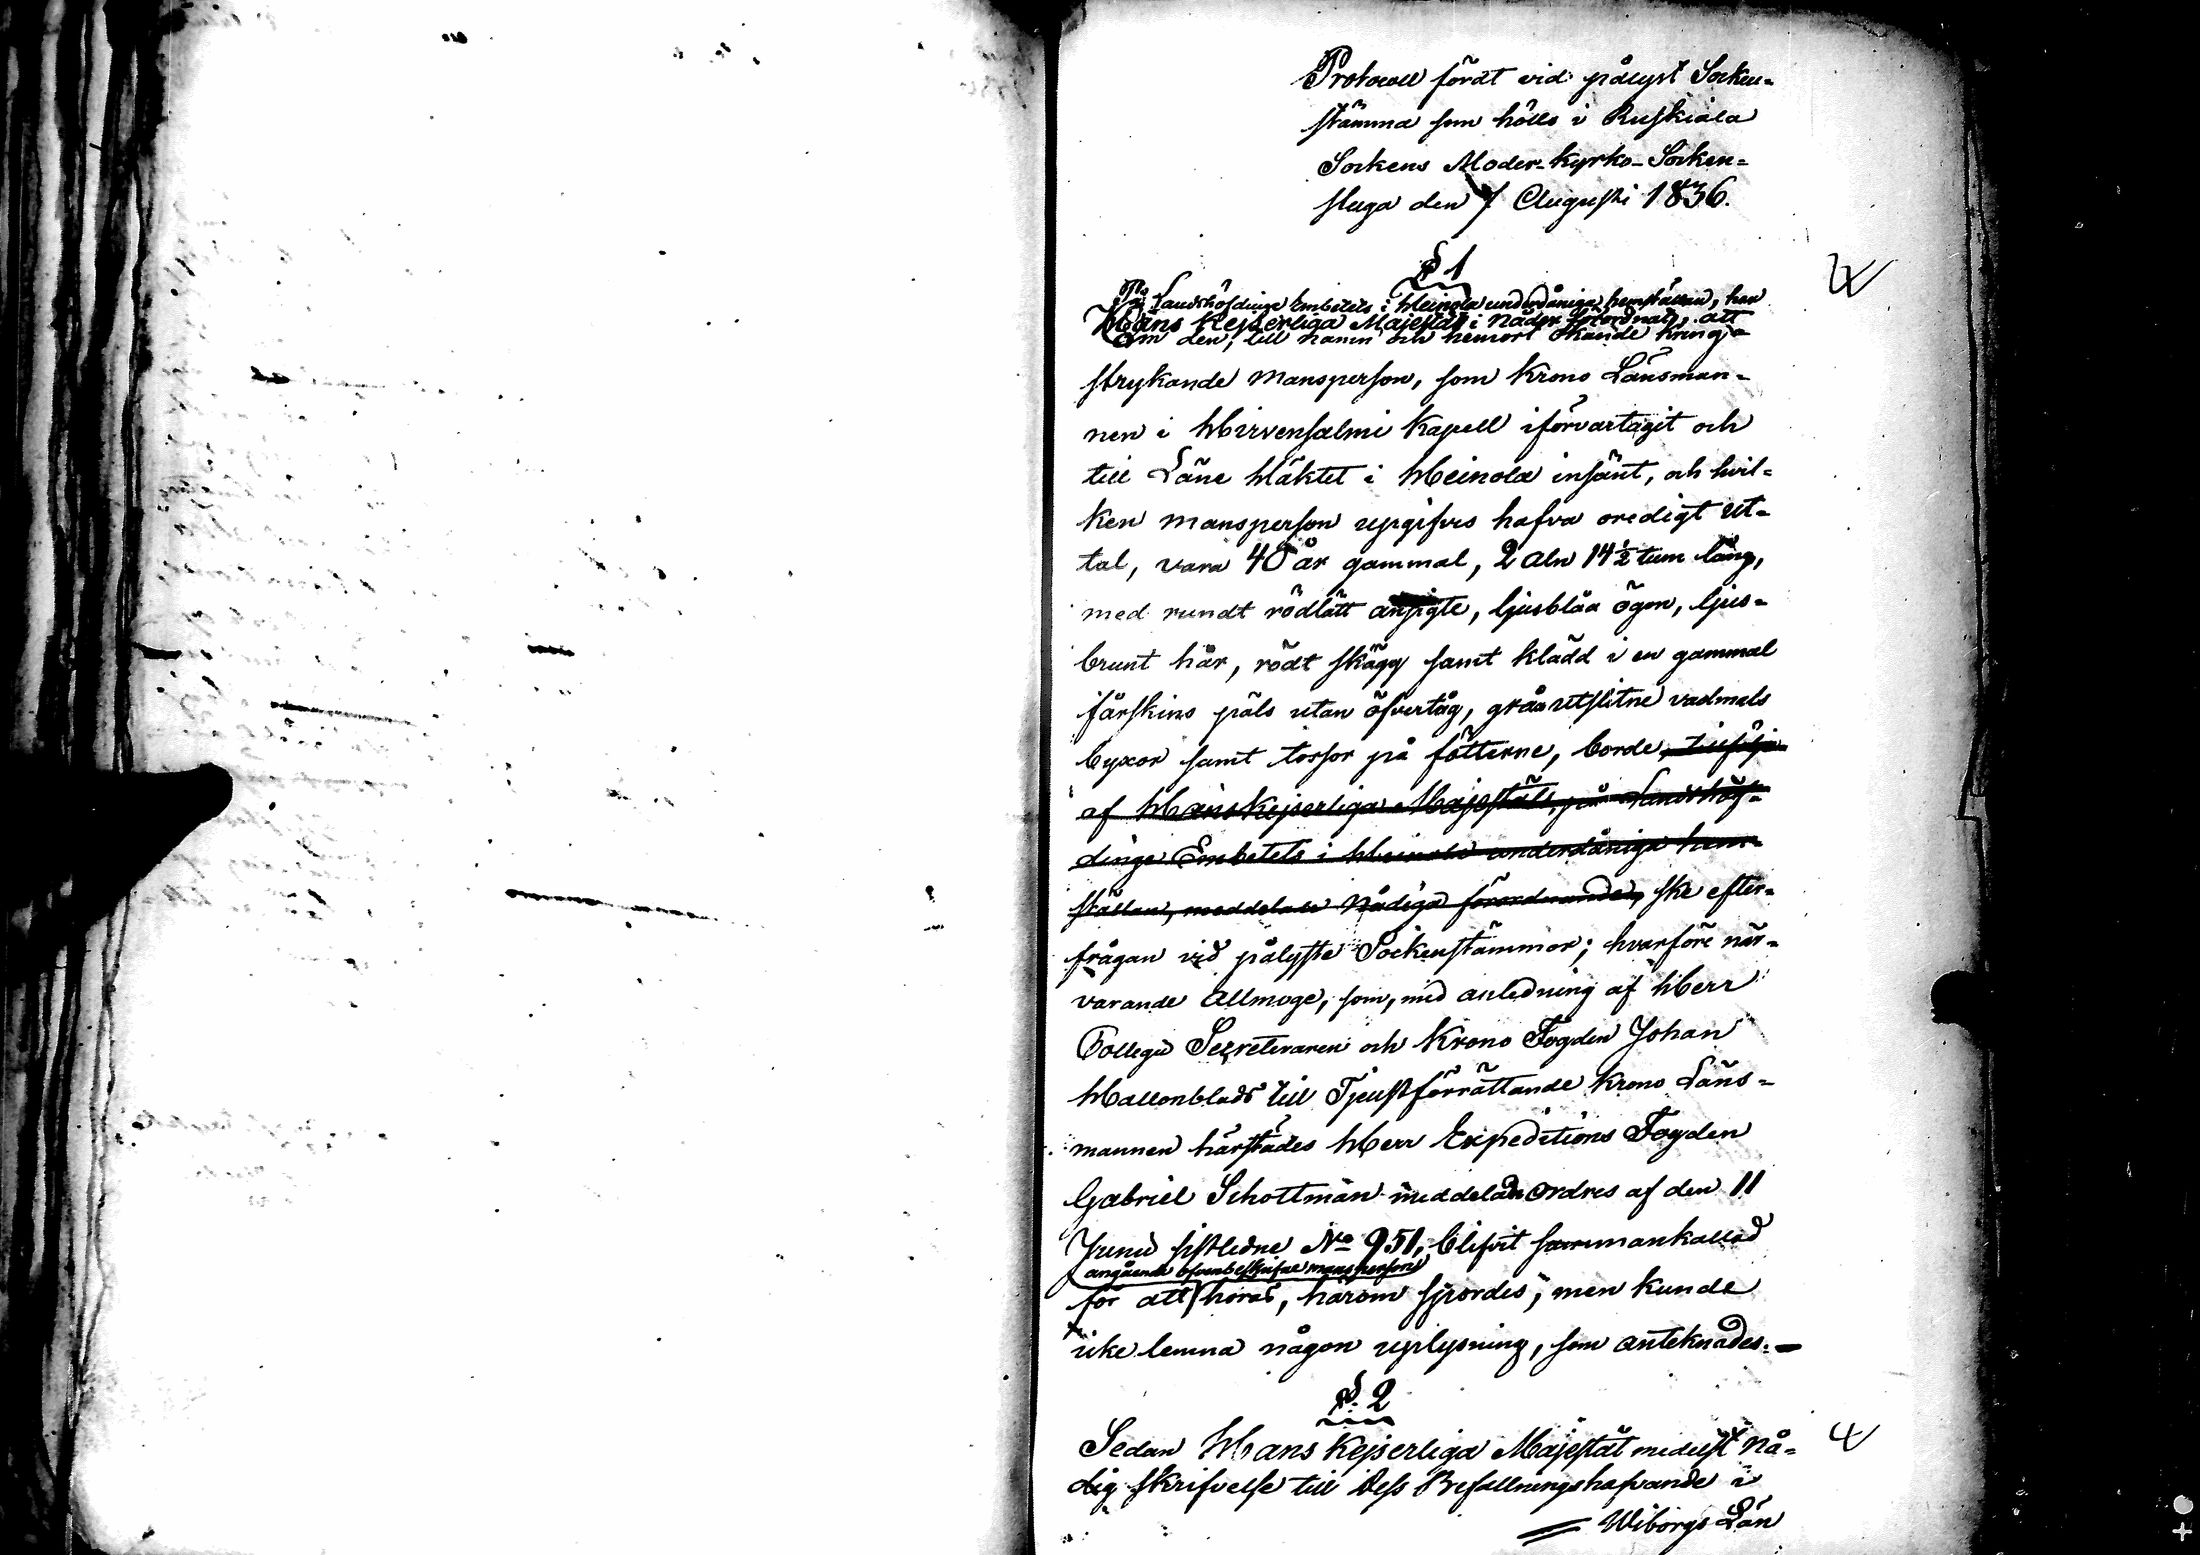 Protocoll fördt vid pålyst Socken=
stämma som hölls i Ruskiala
Sockens Moder-kyrko-Socken=
stuga den 7 Augusti 1836.
§ 1
På Landshöfdinge Embetets i Heinola underdåniga hemställan, har
Hans Kejserliga Majestät i Nåder förordnat, att
om den, till namn och hemort okände kring=
strykande mansperson, som Krono Länsman=
nen i Hirvensalmi Kapell iförvartagit och
till Läne Häktet i Heinola insänt, och hvil=
ken mansperson upgifves hafva oredigt ut=
tal, vara 40 år gammal, 2 aln 14½ tum lång,
med rundt rödlätt ansigte, ljusblåa ögon, ljus=
brunt hår, rödt skägg samt klädd i en gammal
fårskins päls utan öfvertåg, gråa utslitne vadmals
byxor samt tossor på fötterne, borde, till följe
af Hans Kejserliga Majestäts, på Landshöf=
dinge Embetets i Heinola underdåniga hem=
ställan, meddelade Nådiga förordnande, ske efter=
frågan vid pålyste Sockenstämmor; hvarföre när=
varande Allmoge, som, med anledning af Herr
Collegii Secreteraren och Krono Fogden Johan
Hallonblads till Tjenstförrättande Krono Läns=
mannen härstädes Herr Expeditions Fogden
Gabriel Schottman meddelade ordres af den 11
Junii sistledne No 951, blifvit sammankallad
angående ofvanbeskrifne mansperson
för att höras, härom spordes; men kunde
icke lemna någon uplysning, som anteknades.—
§. 2
Sedan Hans Kejserliga Majestät medelst Nå=
dig Skrifvelse till Dess Befallningshafvande i
Wiborgs Län